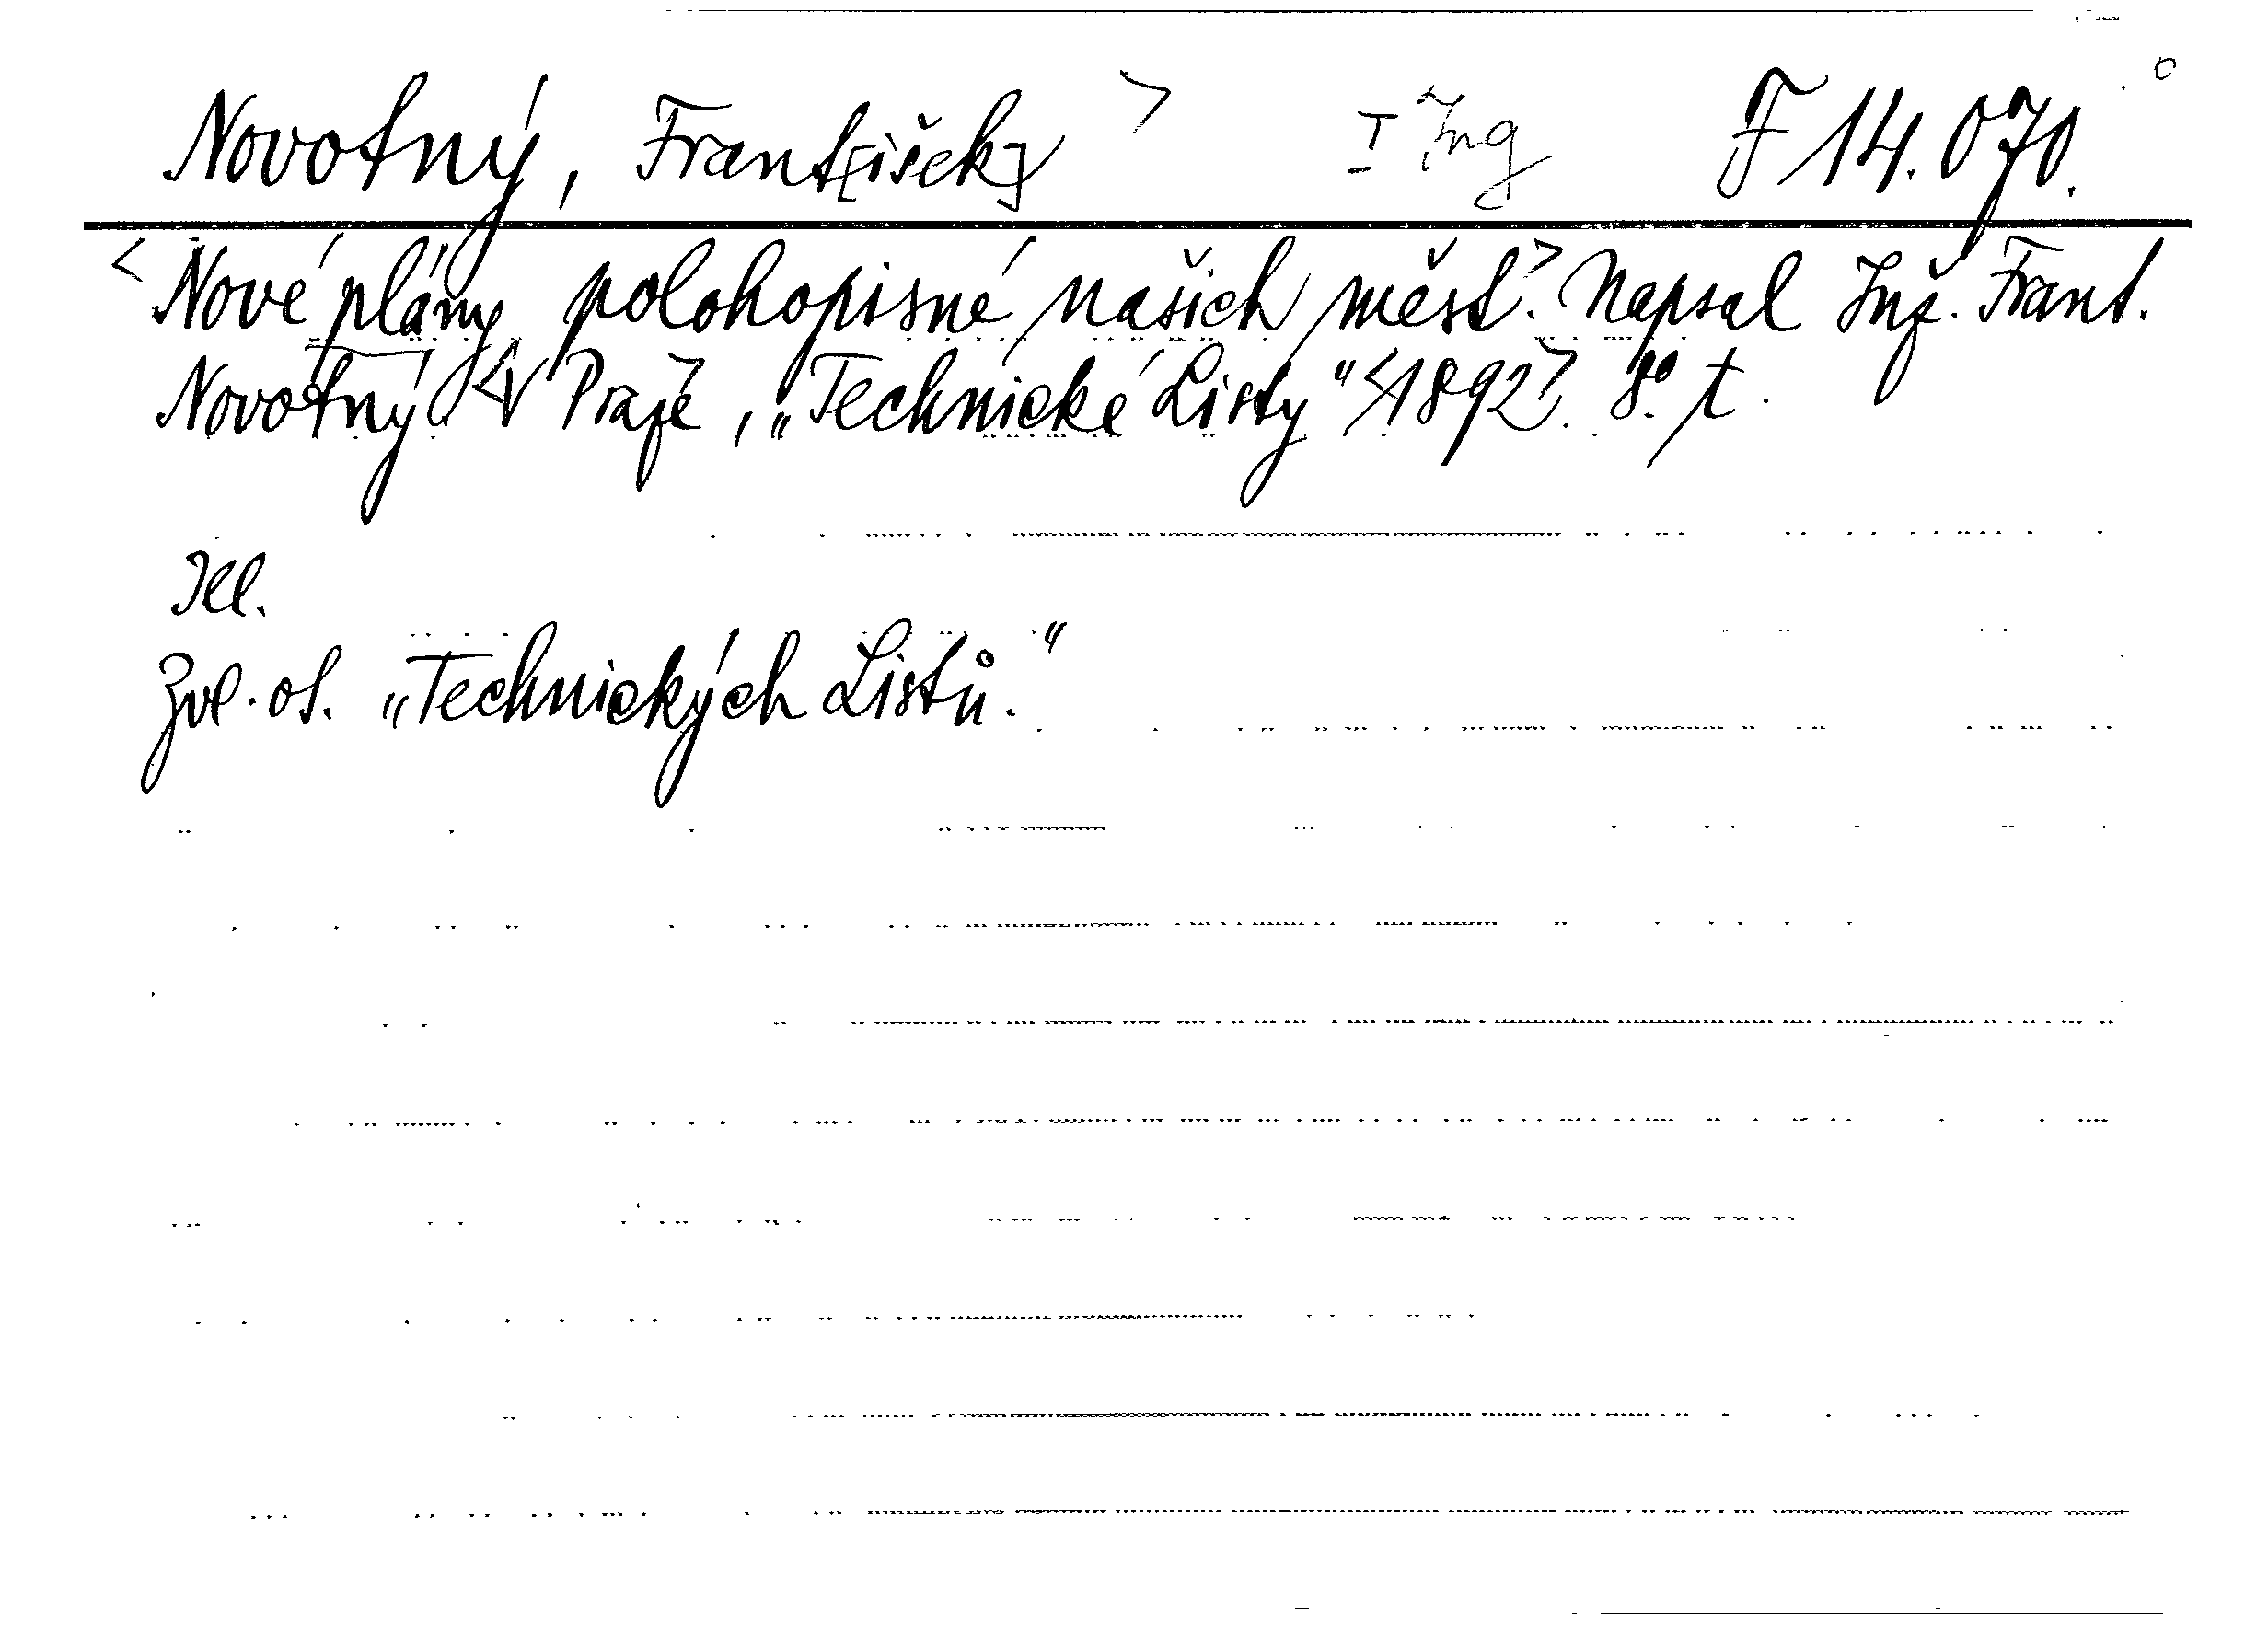 Novotný, Frant[išek] > I Ing F 14.070.
<Nové plány polohopisné našich měst.> Napsal Inž. Frant.
Novotný. <V Praze, „Technické Listy" <1892>. 8°. t.
Ill.
Zvl. ot. „Technických Listů."